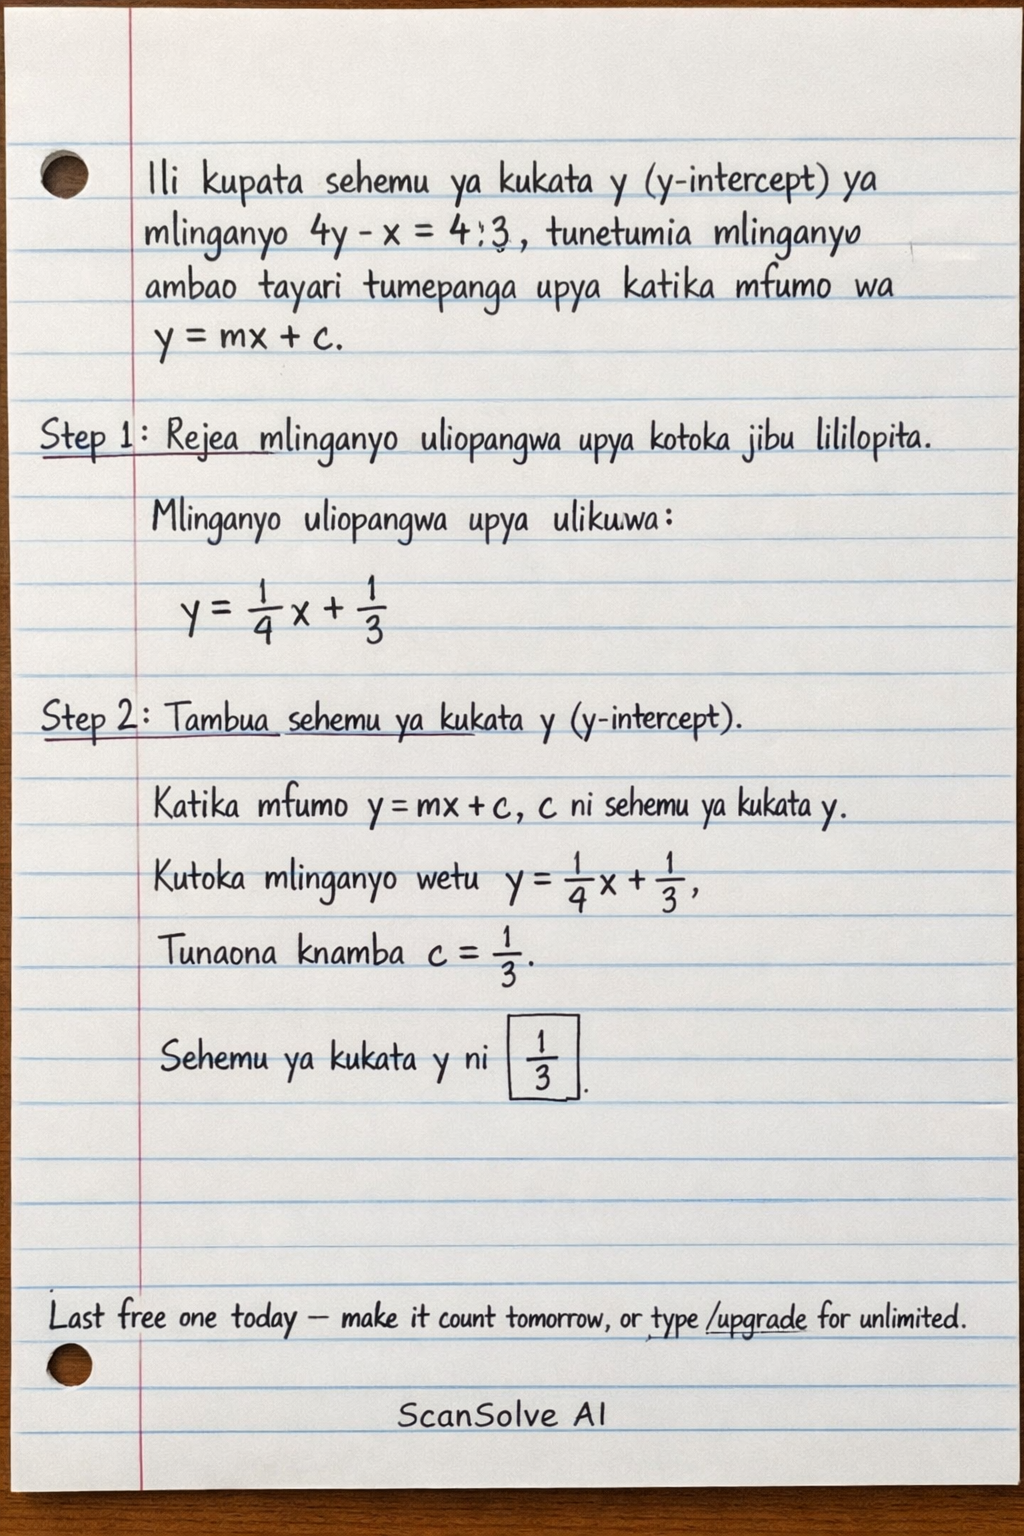 Ili kupata sehemu ya kukata y (y-intercept) ya
mlinganyo 4y - x = 4:3, tunetumia mlinganyo
ambao tayari tumepanga upya katika mfumo wa
y = mx + c.
Step 1: Rejea mlinganyo uliopangwa upya kotoka jibu lililopita.
Mlinganyo uliopangwa upya ulikuwa:
y = 1/4 x + 1/3
Step 2: Tambua sehemu ya kukata y (y-intercept).
Katika mfumo y = mx + c, c ni sehemu ya kukata y.
Kutoka mlinganyo wetu y = 1/4 x + 1/3,
Tunaona knamba c = 1/3.
Sehemu ya kukata y ni 1/3.
Last free one today — make it count tomorrow, or type /upgrade for unlimited.
ScanSolve AI